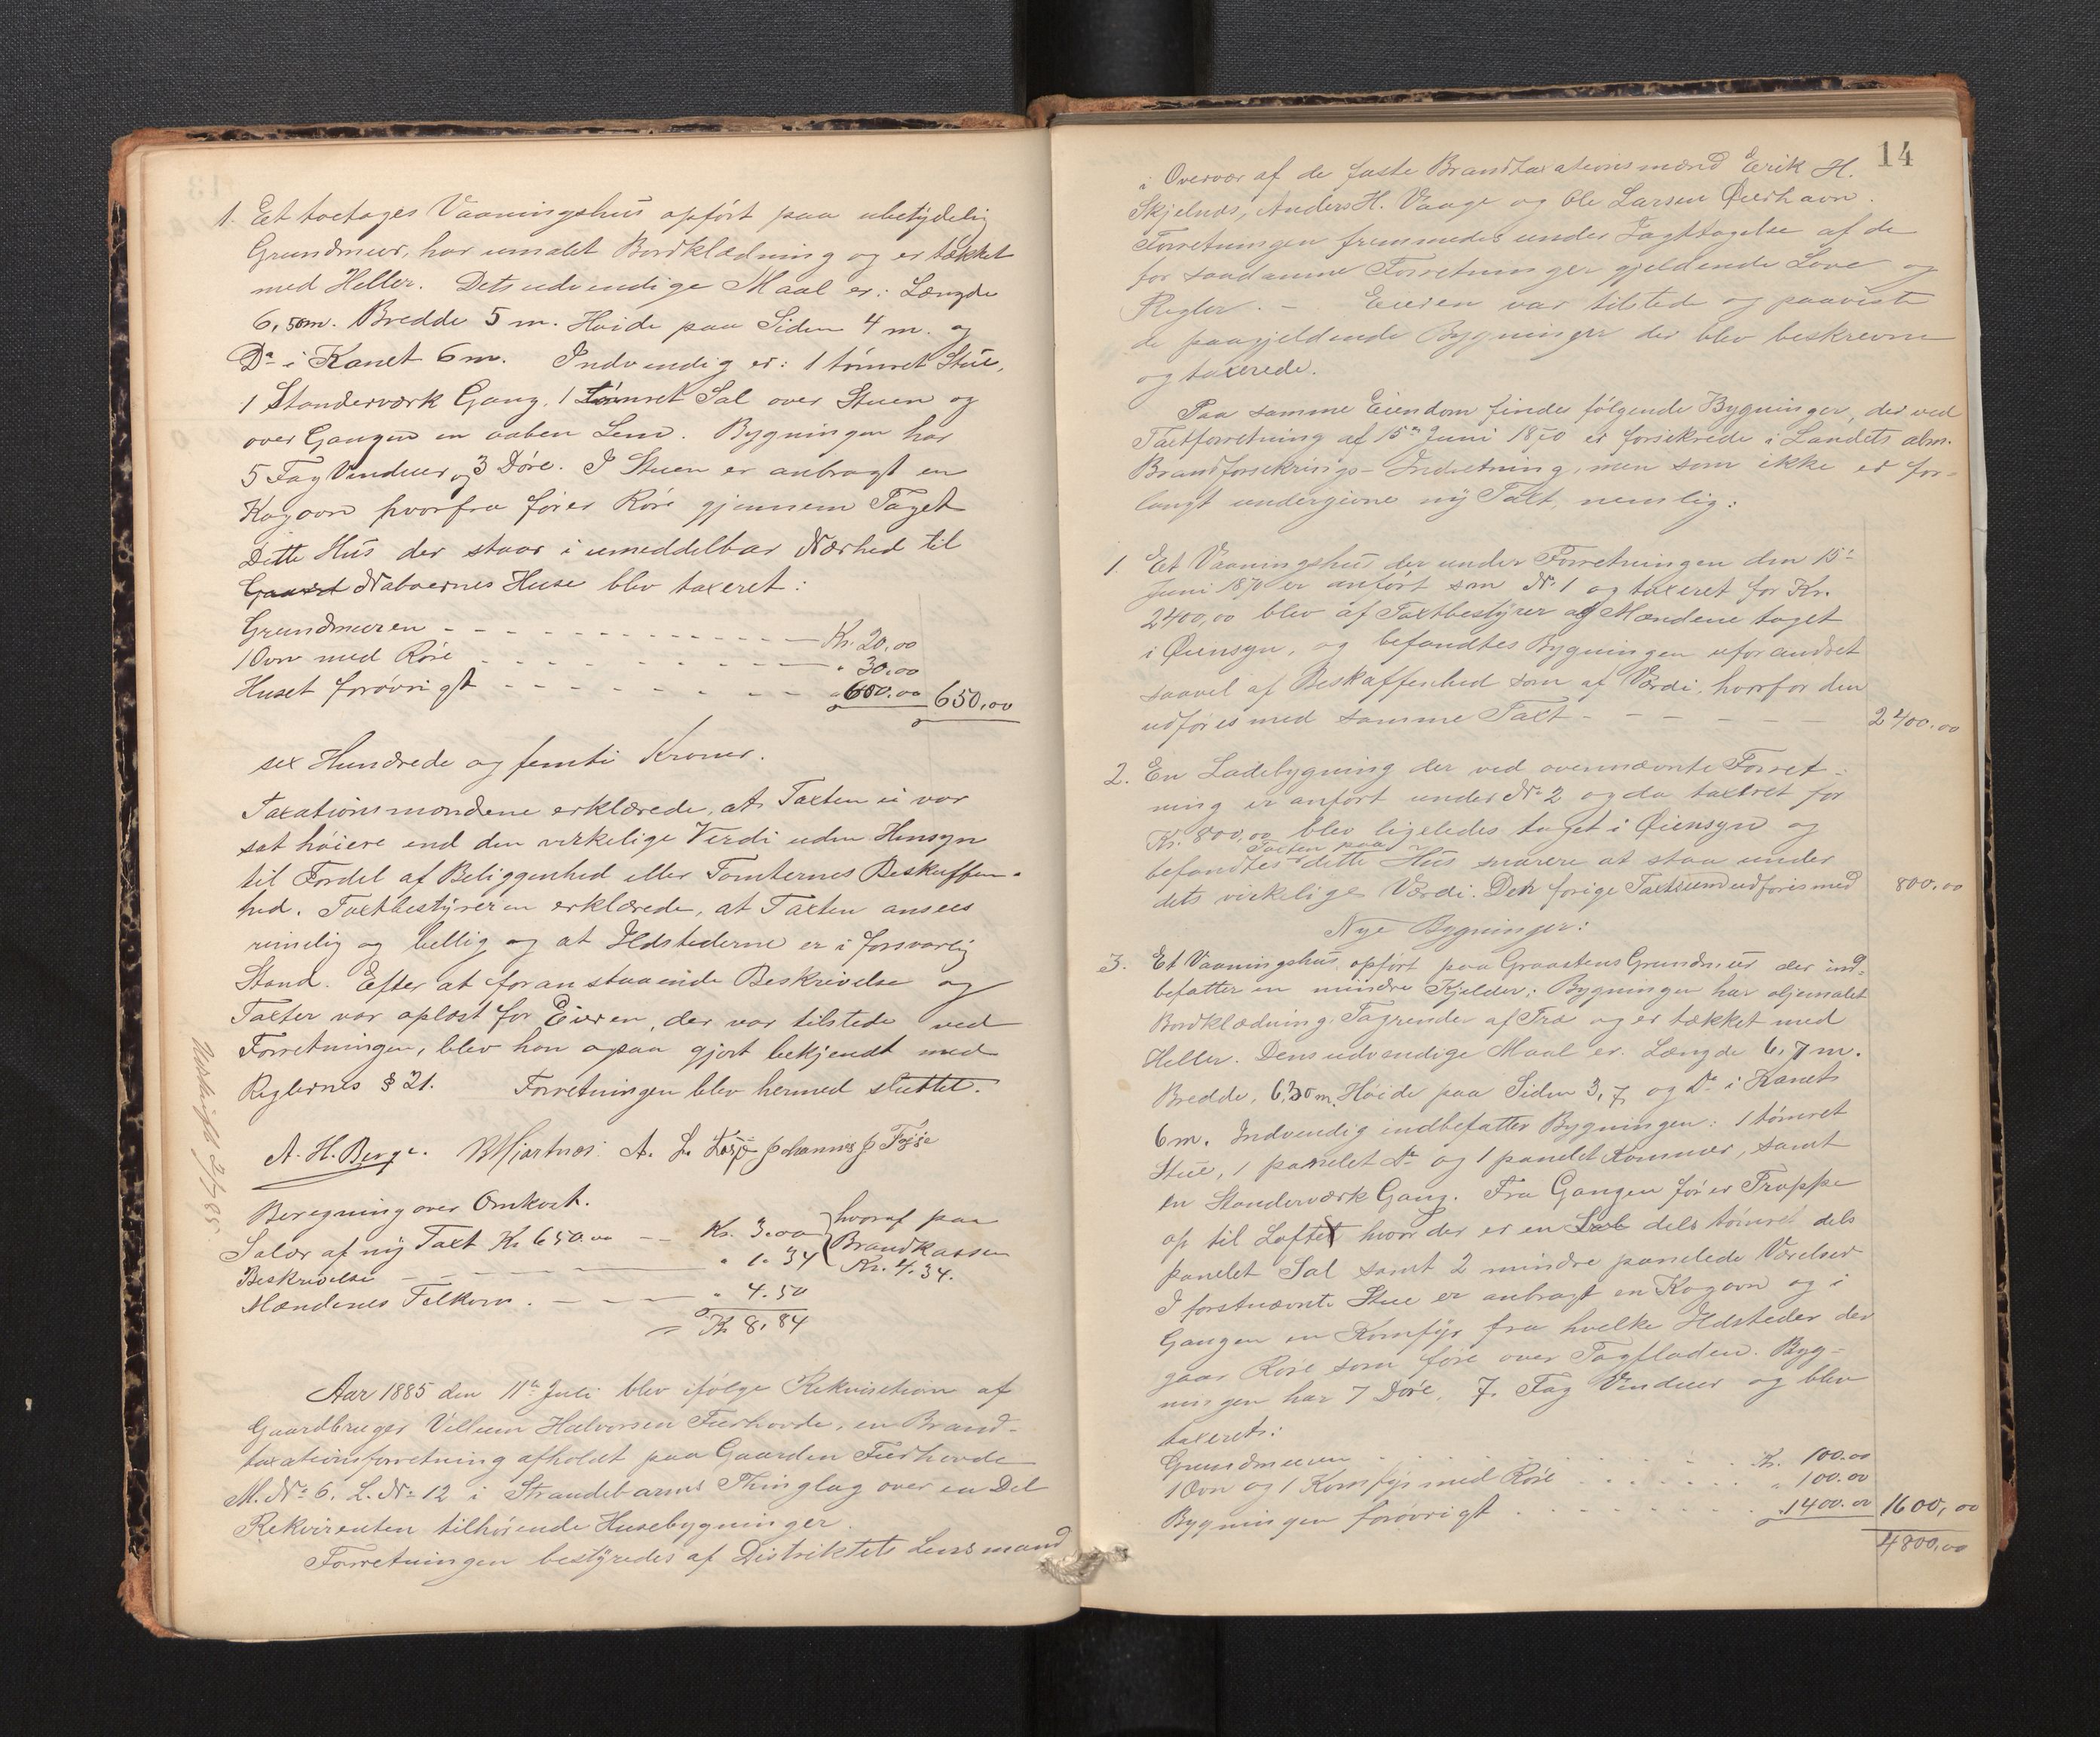 1. Et toetages Vaaningshus opført paa ubetydelig
Grundmuur, har umalet Bordklædning og er tækket
med Heller. Dets udvendige Maal er: Længde
6,50m. Bredde 5 m. Høide paa Siden 4 m. og
Do i Kanet 6m. Indvendig er: 1 tømret Stue,
1 Standerværk Gang, 1 tømret Sal over Stuen og
over Gangen en aaben Lem. Bygningen har
5 Fag Vinduer og 3 Døre. I Stuen er anbragt en
Kogovn hvorfra fører Rør gjennem Taget
Dette Hus der staar i umeddelbar Nærhed til
Gaard Naboernes Huse blev taxeret:
Grundmuren - - - Kr. 20,00
1 Ovn med Rør - - - " 30,00
Huset forøvrigt - - - " 600,00 650,00
sex Hundrede og femti Kroner.
Taxationsmændene erklærede, at Taxten ei var
sat høiere end den virkelige Verdi uden Hensyn
til Fordel af Beliggenhed eller Tomternes Beskaffen-
hed. Taxtbestyreren erklærede, at Taxten ansees
rimelig og billig og at Ildstederne er i forsvarlig
Stand. Efter at foranstaaende Beskrivelse og
Taxter var oplæst for Eieren, der var tilstede ved
Forretningen, blev han ogsaa gjort bekjendt med
Reglernes § 21. Forretningen blev hermed sluttet.
A. H. Berge. A. L. Johannes J
Beregning over Omkost.
Salær af ny Taxt Kr. 650.00 — Kr. 3.00 hvoraf paa
Beskrivelse — " 1.34 Brandkassen
Kr. 4.34.
Mændenes Tilkom. — " 4.50
Kr. 8,84
Udskrift 2/7 85
Aar 1885 den 11te Juli blev ifølge Rekvisition af
Gaardbruger Villum Halvorsen Furhovde, en Brand-
taxationsforretning afholdt paa Gaarden Furhovde
M. No 6. L. No 12 i Strandebarms Thinglag over en Del
Rekvirenten tilhørende Husebygninger.
Forretningen bestyredes af Distriktets Lensmand
14
i Overvær af de faste Brandtaxationsmænd Erik H.
Skjelnes, Anders H. Vaage og Ole Larsen
Forretningen fremmedes under Iagttagelse af de
for saadanne Forretninger gjeldende Love og
Regler. - Eieren var tilstede og paaviste
de paagjeldende Bygninger der blev beskrevne
og taxerede.
Paa samme Eiendom findes følgende Bygninger, der ved
Taxtforretning af 15de Juni 1870 er forsikrede i Landets alm.
Brandforsikrings-Indretning, men som ikke er for-
langt undergivne ny Taxt, nemlig:
1. Et Vaaningshus der under Forretningen den 15de
Juni 1870 er anført som No 1 og taxeret for Kr.
2400,00 blev af Taxtbestyrer og Mændene taget
i Øiensyn, og befandtes Bygningen uforandret
saavel af Beskaffenhed som af Værdi, hvorfor den
udføres med samme Taxt - - - 2400.00
2. En Ladebygning der ved ovennævnte Forret-
ning er anført under No 2 og da taxeret for
Kr. 800,00 blev ligeledes taget i Øiensyn og
Taxten paa
befandtes dette Hus snarere at staa under
dets virkelige Værdi. Den forige Taxtsum udføres med 800,00
Nye Bygninger:
3. Et Vaaningshus opført paa Graastens Grundmuur der ind-
befatter en mindre Kjelder; Bygningen har oljemalet
Bordklædning, Tagrender af Træ og er tækket med
Heller. Dens udvendige Maal er. Længde 6,7 m.
Bredde, 6,30 m, Høide paa Siden 3,7 og Do i Kanet
6 m. Indvendig indbefatter Bygningen: 1 tømret
Stue, 1 panelet Do og 1 panelet Kammer, samt
en Standerværk Gang. Fra Gangen fører Trappe
op til Loftet hvor der er en Sal dels tømret dels
panelet Sal samt 2 mindre panelede Værelser
I førstnævnte Stue er anbragt en Kogovn og i
Gangen en Komfyr fra hvilke Ildsteder der
gaar Røre som føre over Tagfladen. Byg-
ningen har 7 Døre, 7 Fag Vinduer og blev
taxeret:
Grundmuren . . . Kr. 100.00
1 Ovn og 1 Komfyr med Røre . . . " 100.00
Bygningen forøvrigt . . . " 1400.00 1600,00
4800,00